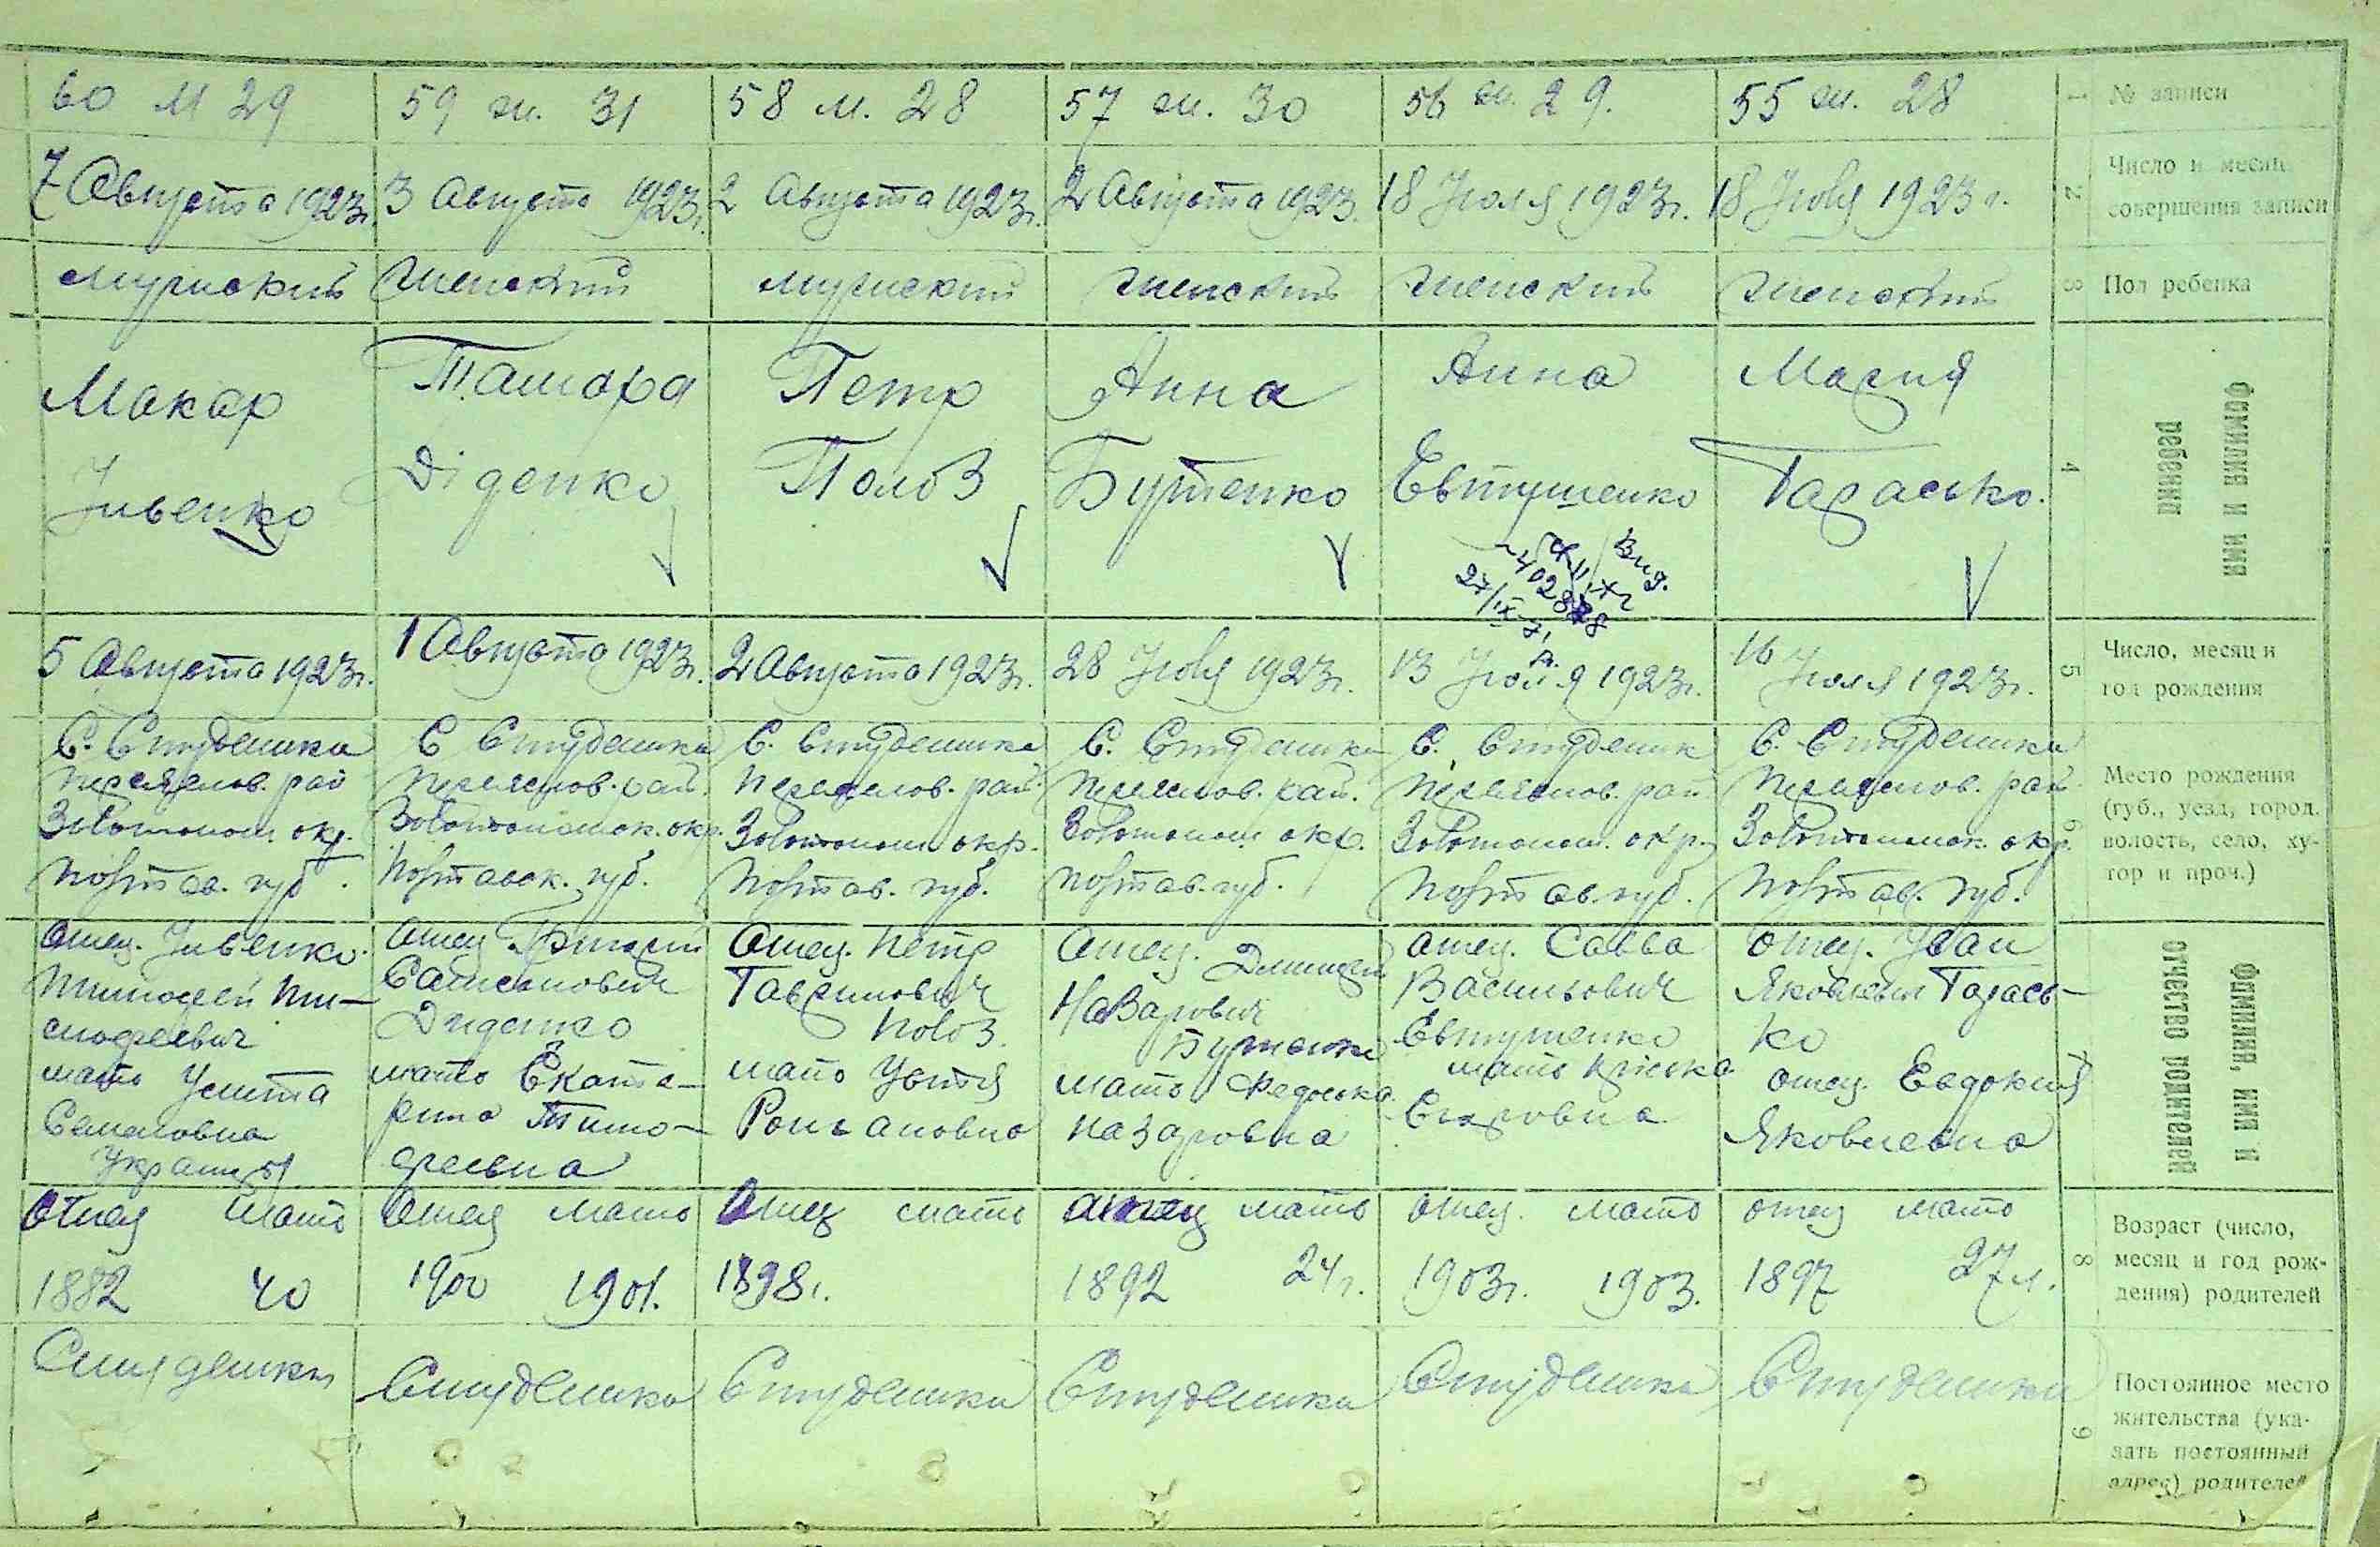 № записи
Число и месяц
совершения записи
Пол ребенка
Фамилия и имя
ребенка
Число, месяц и
год рождения
Место рождения
(губ., уезд, город,
волость, село, ху-
тор и проч.)
Фамилия, имя и
отчество родителей
Возраст (число,
месяц и год рож-
дения) родителей
Постоянное место
жительства (ука-
зать постоянный
адрес) родителей
1
2
3
4
5
6
7
8
9
60 м 29
7 Августа 1923г.
мужский
Макар
Ивенко
5 Августа 1923г.
С. Студеники
Переяслов. рай
Золотонош. окр.
Полтав. губ.
Отец. Ивенко
Тимофей Ти-
мофеевич
мать Улита
Семеновна
Украинцы
Отец мать
1882 40
Студеники
59 ж. 31
3 Августа 1923г.
женский
Тамара
Діденко
1 Августа 1923г.
С Студеники
Переяслов. рай.
Золотоношск. окр.
Полтавск. губ.
Отец Григорий
Самсонович
Диденко
мать Екате-
рина Тимо-
феевна
Отец мать
1900 1901.
Студеники
58 м. 28
2 Августа 1923г.
мужский
Петр
Полоз
2 Августа 1923г.
С. Студеники
Переяслов. рай.
Золотонош окр.
Полтав. губ.
Отец. Петр
Гаврилович
Полоз.
мать Устя
Романовна
Отец мать
1898г.
Студеники
57 ж. 30
2 Августа 1923.
женский
Анна
Бутенко
28 Июля 1923г.
С. Студеники
Переяслов. рай.
Золотонош окр.
Полтав. губ.
Отец. Дмитрий
Назарович
Бутенко
мать Федоська
Назаровна
отец мать
1892 24г.
Студеники
56 ж. 29.
18 Июля 1923г.
женский
Анна
Евтушенко
13 Июля 1923г.
С. Студеник
Переяслов. рай
Золотонош. окр.
Полтав. губ.
Отец. Савва
Васильович
Евтушенко
мать Прiська
Егоровна
отец. мать
1903г. 1903.
Студеники
55 ж. 28
18 Июля 1923г.
женский
Мария
Тарасько.
16 Июля 1923г.
С. Студеники
Переяслов. рай
Золотоношск. окр.
Полтав. губ.
Отец. Иван
Яковлевич Тарась-
ко
отец. Евдокия
Яковлевна
отец мать
1897 27л.
Студеники